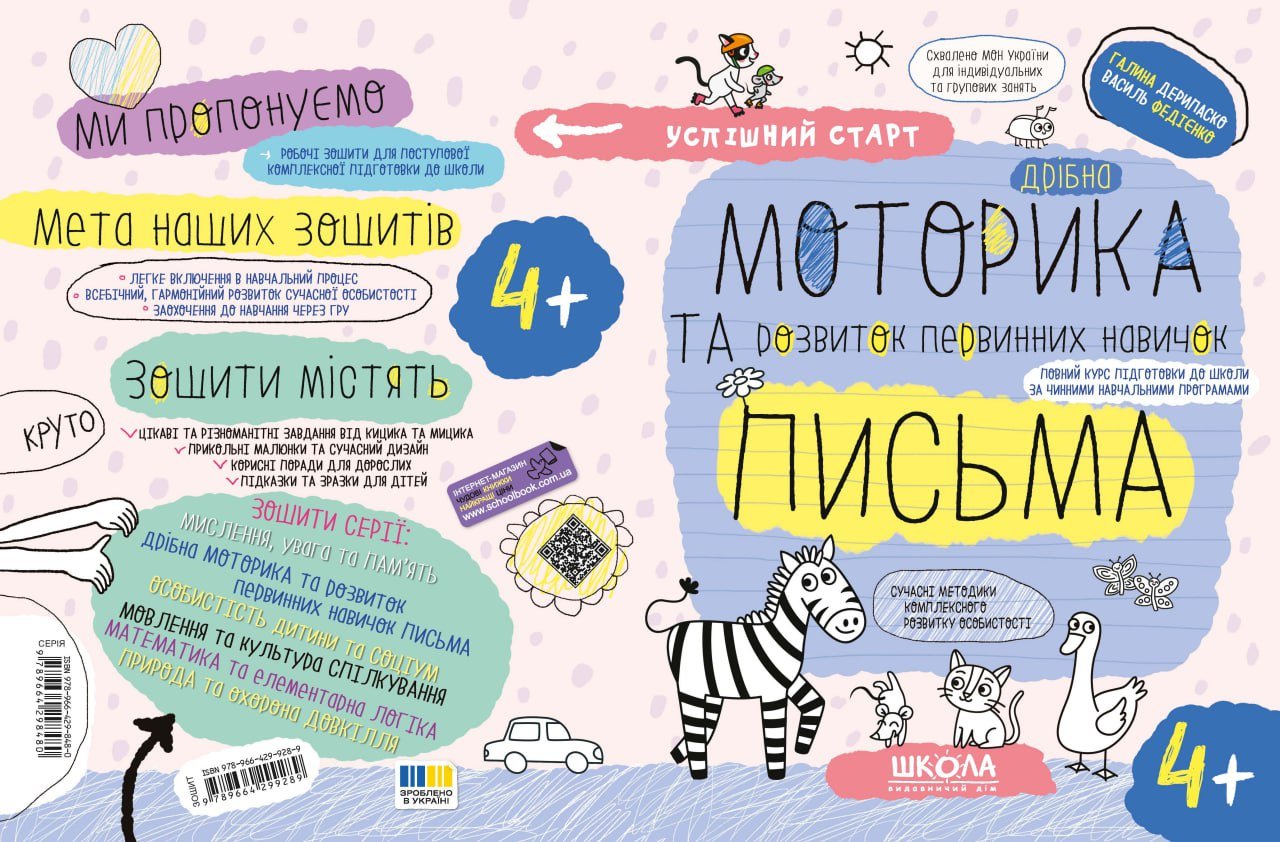 МИ ПРОПОНУЄМО
РОБОЧІ ЗОШИТИ ДЛЯ ПОСТУПОВОЇ
КОМПЛЕКСНОЇ ПІДГОТОВКИ ДО ШКОЛИ
Мета наших зошитів
ЛЕГКЕ ВКЛЮЧЕННЯ В НАВЧАЛЬНИЙ ПРОЦЕС
ВСЕБІЧНИЙ, ГАРМОНІЙНИЙ РОЗВИТОК СУЧАСНОЇ ОСОБИСТОСТІ
ЗАОХОЧЕННЯ ДО НАВЧАННЯ ЧЕРЕЗ ГРУ
4+
Зошити містять
КРУТО
ЦІКАВІ ТА РІЗНОМАНІТНІ ЗАВДАННЯ ВІД КИЦИКА ТА МИЦИКА
ПРИКОЛЬНІ МАЛЮНКИ ТА СУЧАСНИЙ ДИЗАЙН
КОРИСНІ ПОРАДИ ДЛЯ ДОРОСЛИХ
ПІДКАЗКИ ТА ЗРАЗКИ ДЛЯ ДІТЕЙ
ІНТЕРНЕТ-МАГАЗИН
ЧУДОВІ КНИЖКИ
НАЙКРАЩІ ЦІНИ
www.schoolbook.com.ua
ЗОШИТИ СЕРІЇ:
МИСЛЕННЯ, УВАГА ТА ПАМ'ЯТЬ
ДРІБНА МОТОРИКА ТА РОЗВИТОК
ПЕРВИННИХ НАВИЧОК ПИСЬМА
ОСОБИСТІСТЬ ДИТИНИ ТА СОЦІУМ
МОВЛЕННЯ ТА КУЛЬТУРА СПІЛКУВАННЯ
МАТЕМАТИКА ТА ЕЛЕМЕНТАРНА ЛОГІКА
ПРИРОДА ТА ОХОРОНА ДОВКІЛЛЯ
СЕРІЯ
ISBN 978-966-429-848-0
9789664298480
ЗОШИТ
ISBN 978-966-429-928-9
9789664299289
ЗРОБЛЕНО
В УКРАЇНІ
УСПІШНИЙ СТАРТ
Схвалено МОН України
для індивідуальних
та групових занять
ГАЛИНА ДЕРИПАСКО
ВАСИЛЬ ФЕДІЄНКО
ДРІБНА
МОТОРИКА
ТА РОЗВИТОК ПЕРВИННИХ НАВИЧОК
ПОВНИЙ КУРС ПІДГОТОВКИ ДО ШКОЛИ
ЗА ЧИННИМИ НАВЧАЛЬНИМИ ПРОГРАМАМИ
ПИСЬМА
СУЧАСНІ МЕТОДИКИ
КОМПЛЕКСНОГО
РОЗВИТКУ ОСОБИСТОСТІ
ШКОЛА
видавничий дім
4+